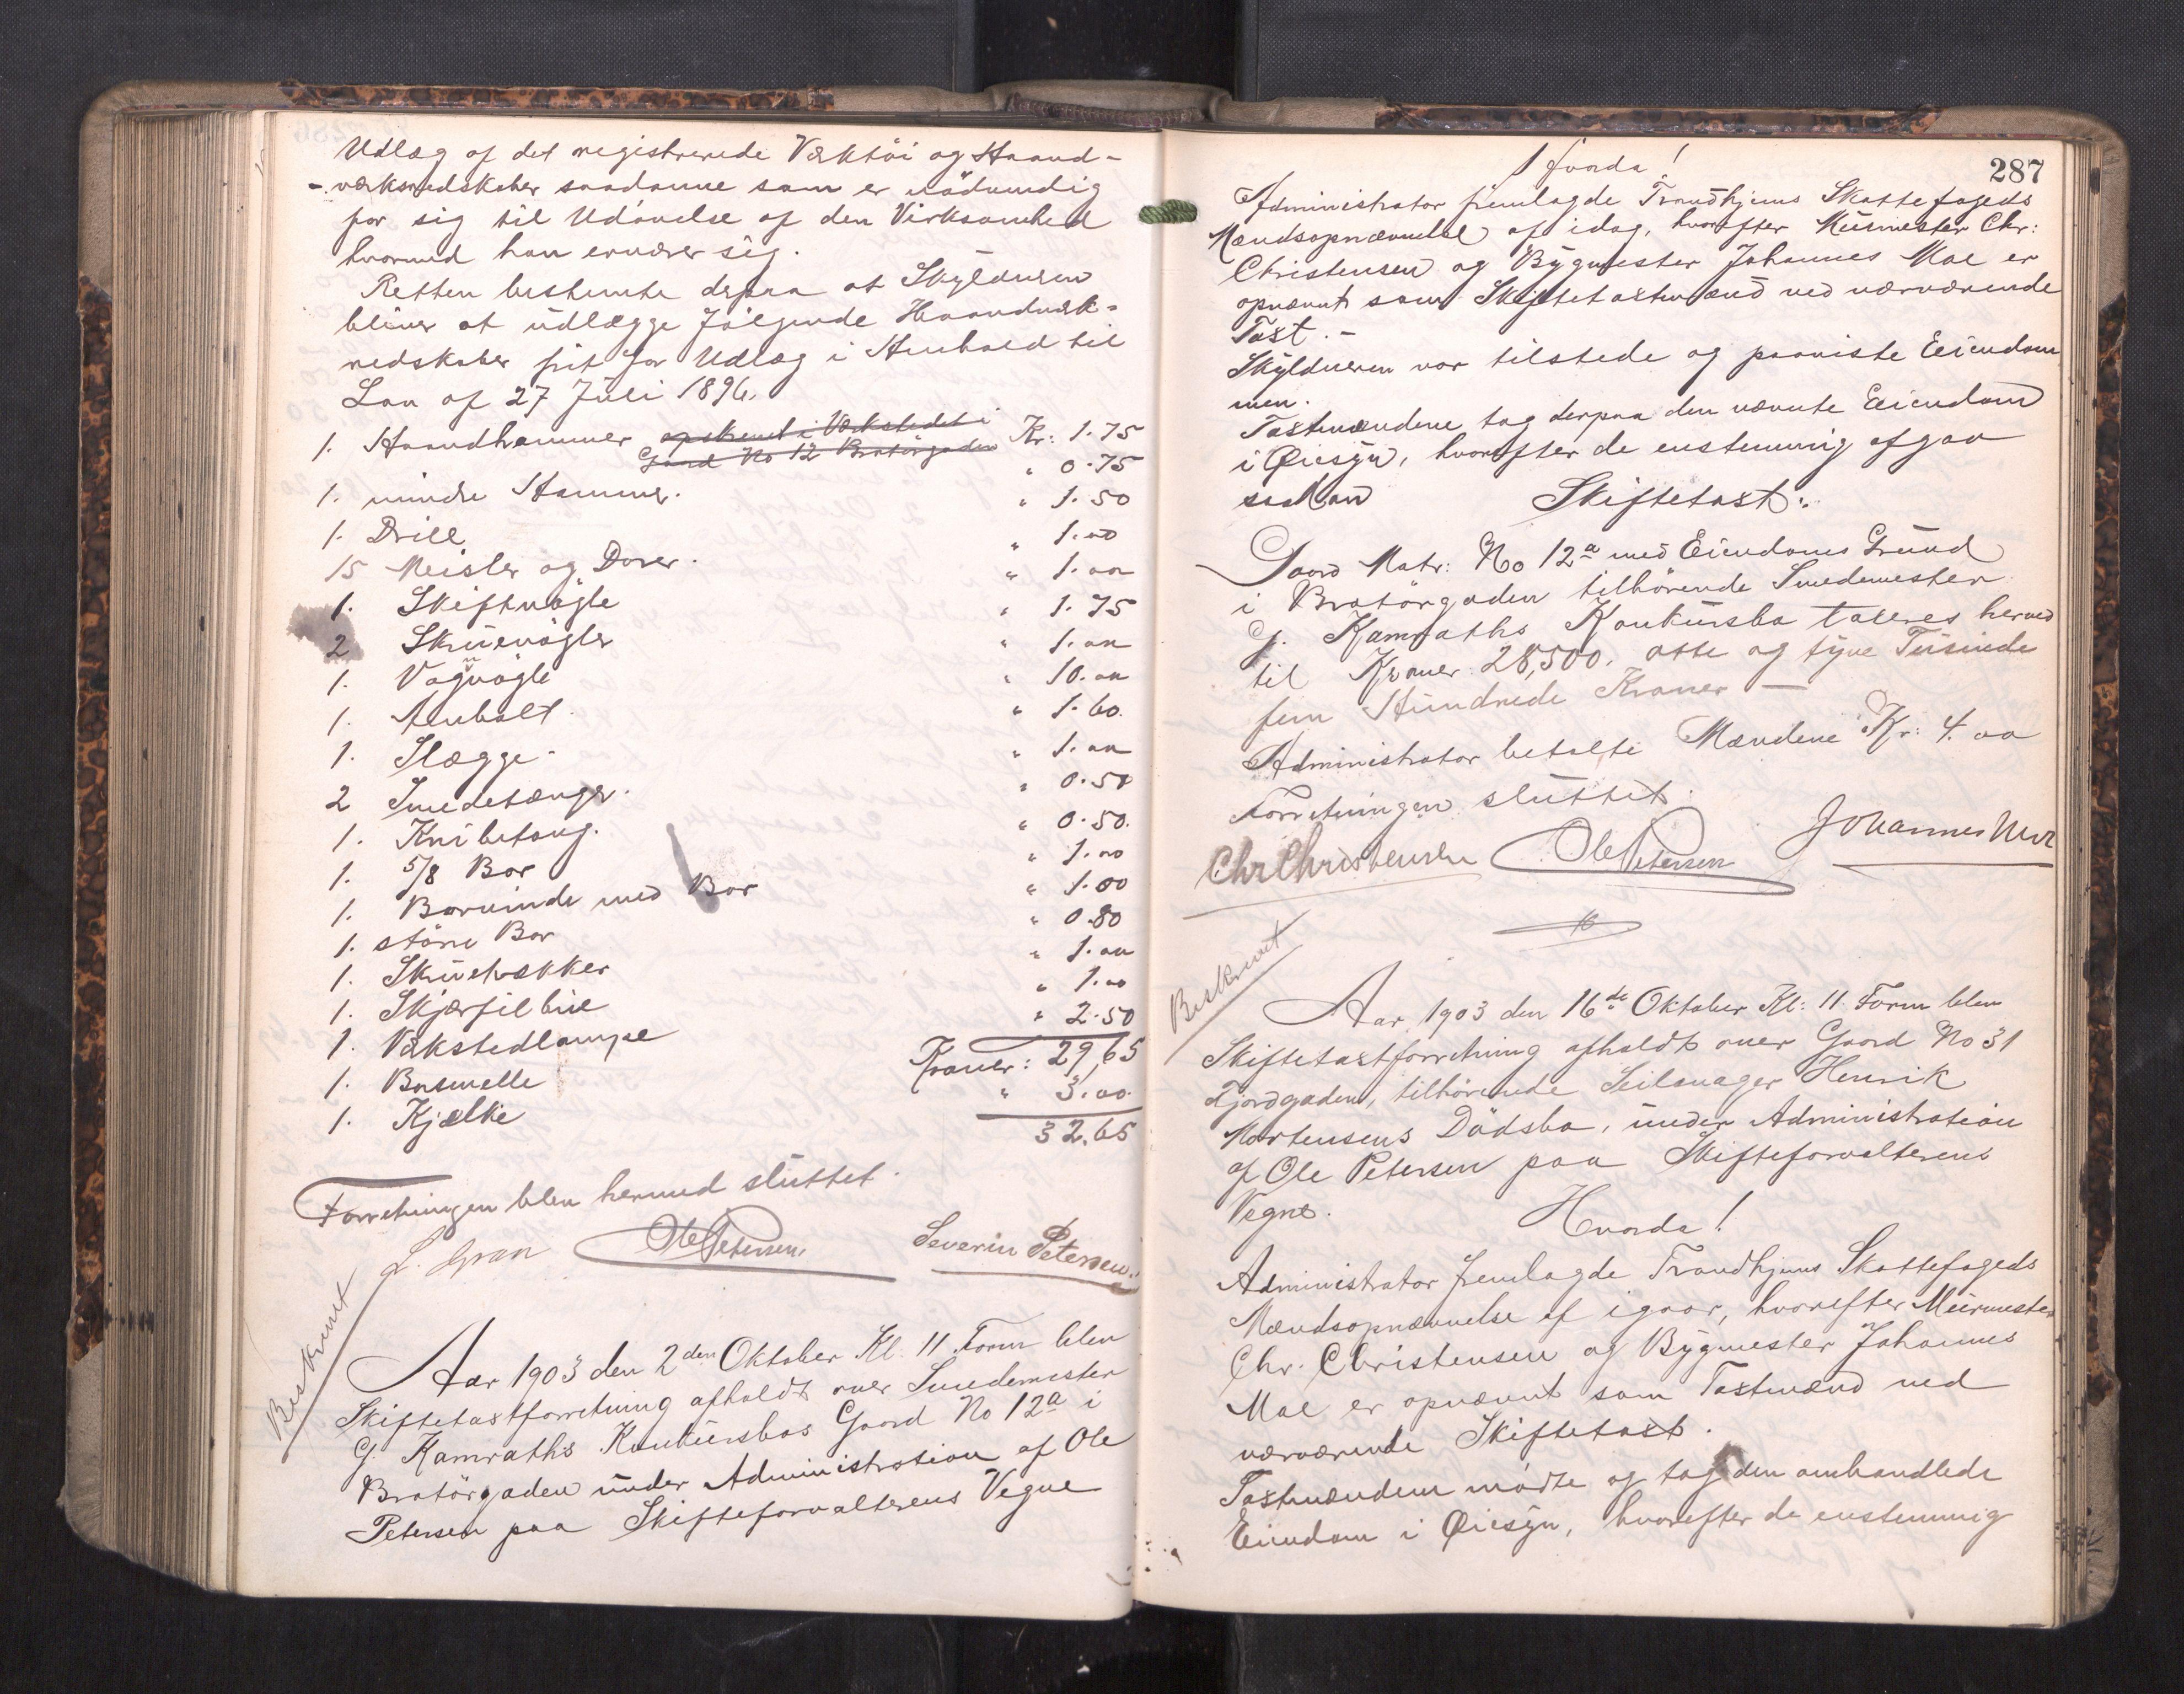 Udlæg af det registrerede Værktöi og Haand-
- værksredskaber saadanne som er nödvendig
for sig til Udövelse af den Virksomhed
hvormed han ernærer sig.
Retten bestemte derpaa at Skyldneren
bliver at udlægge fölgende Haandværk-
redskaber frit for Udlæg i Henhold til
Lov af 27 Juli 1896.
1. Haandhammer opskrevet i Værkstedet i Gaard No 12 Bratörgaden Kr: 1.75
1. mindre Hammer. " 0.75
1. Drill " 1.50
15 Meisler og Dorer. " 1.00
1. Skiftnögle " 1.00
2 Skruenögler " 1.75
1. Vognnögle " 1.00
1. Ambolt " 10.00
1. Slægge - " 1.60
2 Smedetænger. " 1.00
1. Knibetang. " 0.50
1. 5/8 Bor " 0.50
1. Borvinde med Bor " 1.00
1. större Bor " 1.00
1. Skruetrækker " 0.80
1. Skjærfilbue " 1.00
1. Værkstedlampe " 1.00
1. Boxmelle " 2.50
Kroner: 29,65
1. Kjælke " 3.00
32.65
Forretningen blev hermed sluttet.
L. Gran Ole Petersen Severin Petersen.
Beskrevet
Aar 1903 den 2den Oktober Kl. 11 Form blev
Skiftetaxtforretning afholdt over Smedemester
G. Kamraths Konkursbos Gaard No 12a i
Bratörgaden under Administration af Ole
Petersen paa Skifteforvalterens Vegne
287
Hvorda!
Administrator fremlagde Trondhjems Skattefogeds
Mændsopnævnelse af idag, hvorefter Murmester Chr:
Christensen og Bygmester Johannes Moe er
opnævnt som Skiftetaxtmænd ved nærværende
Taxt. -
Skyldneren var tilstede og paaviste Eiendom
men.
Taxtmændene tog derpaa den nævnte Eiendom
i Øiesyn, hvorefter de enstemmig afgav
saadan Skiftetaxt:
Gaard Matr: No 12a med Eiendoms Grund
i Bratörgaden tilhörende Smedemester
G. Kamraths Konkursbo taxeres herved
til Kroner 28,500, otte og tyve Tusinde
fem Hundrede Kroner —
Administrator betalte Mændene Kr: 4.00
Forretningen sluttet.
Chr Christensen Ole Petersen Johannes Moe
Beskrevet
Aar 1903 den 16de Oktober Kl: 11 Form blev
Skiftetaxtforretning afholdt over Gaard No 31
Fjordgaden, tilhörende Seilmager Henrik
Mortensens Dödsbo, under Administration
af Ole Petersen paa Skifteforvalterens
Vegne.
Hvorda!
Administrator fremlagde Trondhjems Skattefogeds
Mændsopnævnelse af igaar, hvorefter Murmester
Chr. Christensen og Bygmester Johannes
Moe er opnævnt som Taxtmænd ved
nærværende Skiftetaxt.
Taxtmændene mödte og tog den omhandlede
Eiendom i Øiesyn, hvorefter de enstemmig